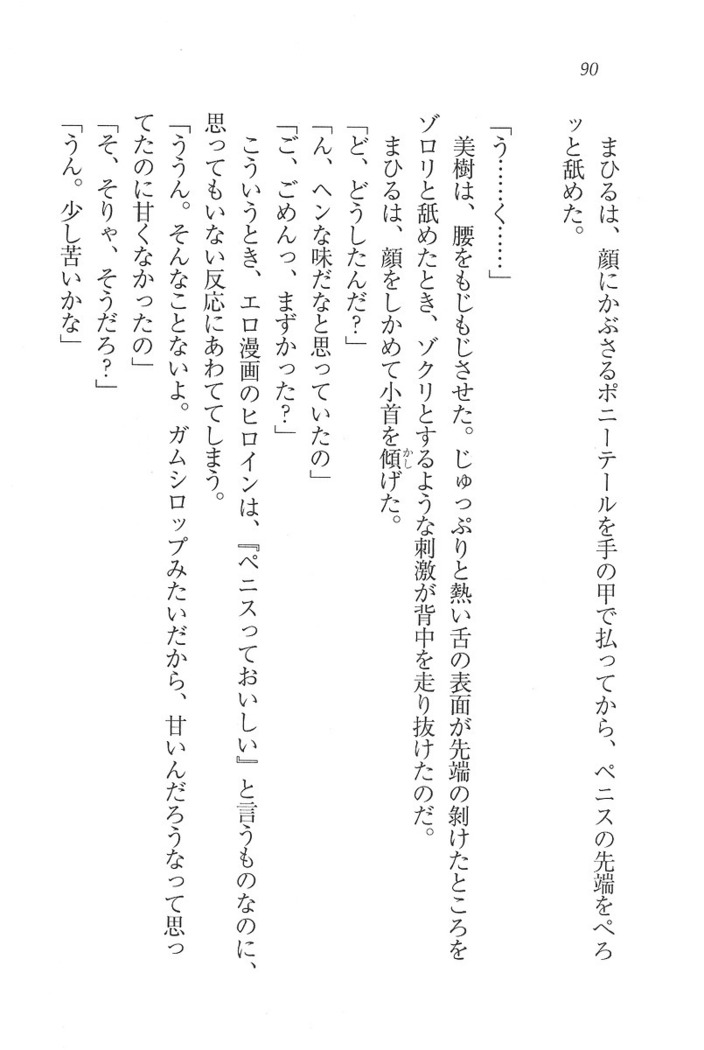 90
まひるは、顔にかぶさるポニーテールを手の甲で払ってから、ペニスの先端をぺろ
ッと舐めた。
「う……く……」
美樹は、腰をもじもじさせた。じゅっぷりと熱い舌の表面が先端の剝けたところを
ゾロリと舐めたとき、ゾクリとするような刺激が背中を走り抜けたのだ。
まひるは、顔をしかめて小首を傾かしげた。
「ど、どうしたんだ?」
「ん、ヘンな味だなと思っていたの」
「ご、ごめんっ、まずかった?」
こういうとき、エロ漫画のヒロインは、『ペニスっておいしい』と言うものなのに、
思ってもいない反応にあわててしまう。
「ううん。そんなことないよ。ガムシロップみたいだから、甘いんだろうなって思っ
てたのに甘くなかったの」
「そ、そりゃ、そうだろ?」
「うん。少し苦いかな」